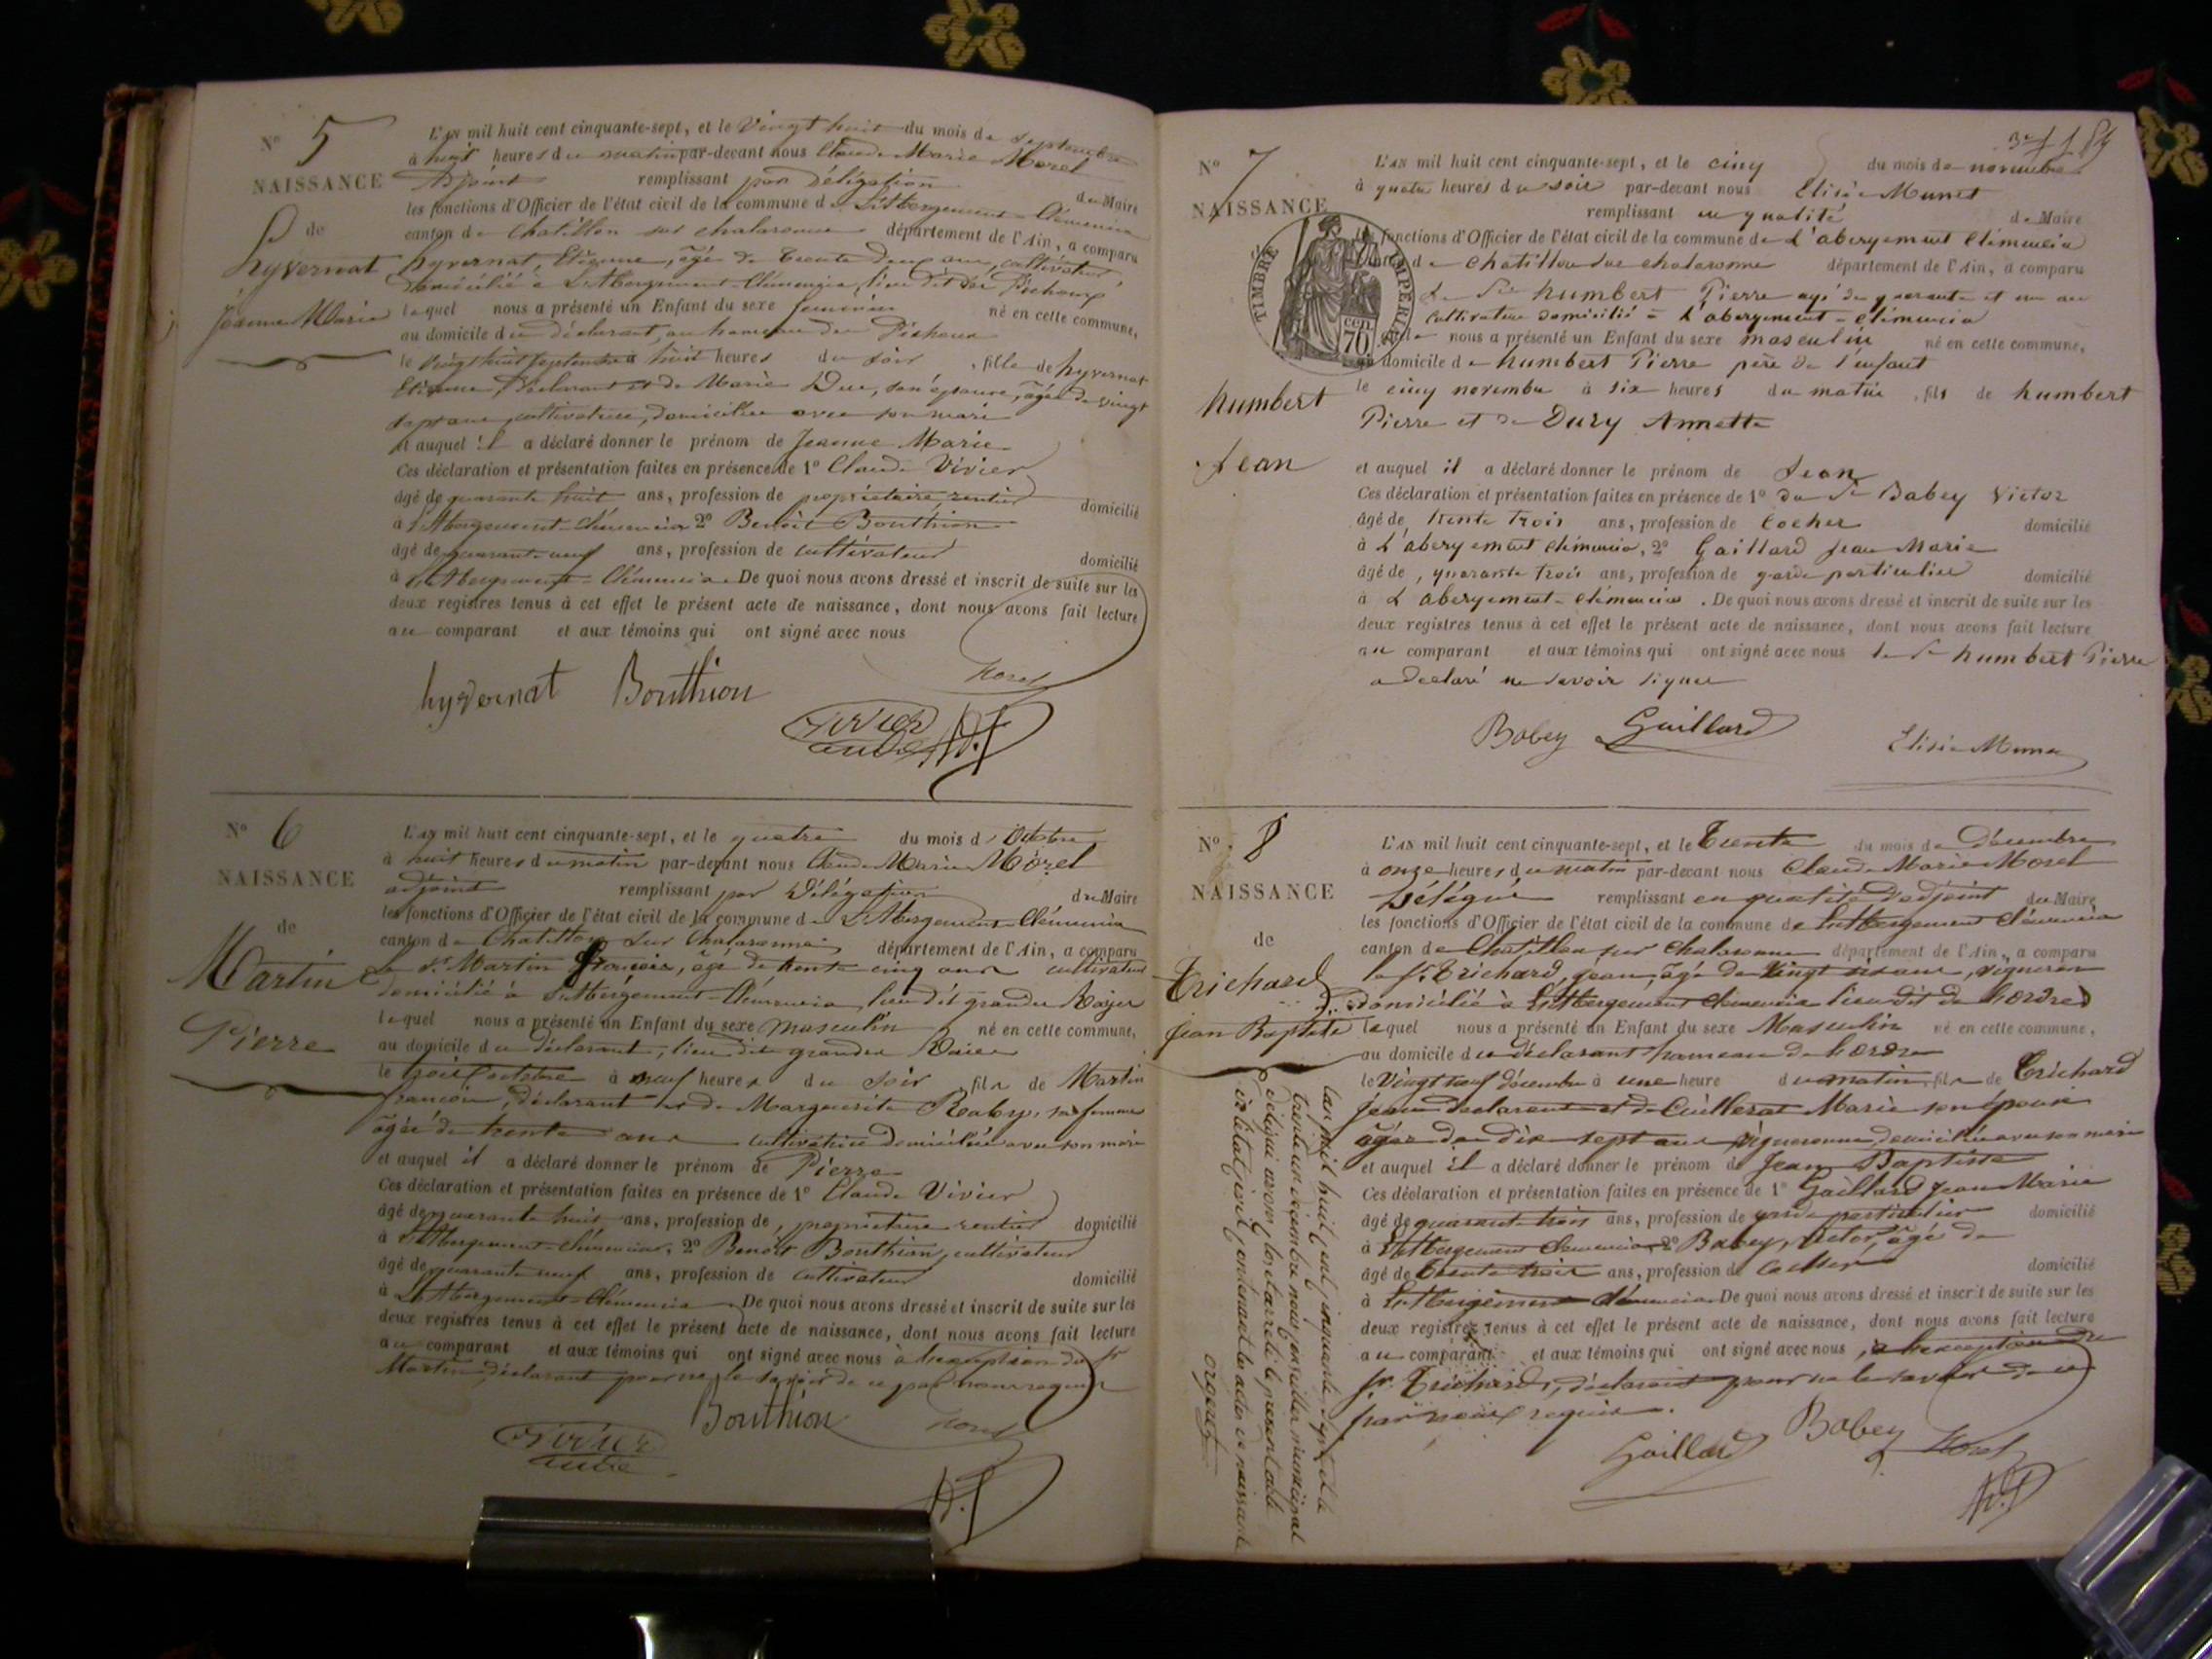 N° 5
NAISSANCE
de
hyvernat
Jeanne Marie
L'AN mil huit cent cinquante-sept, et le Vingt huit du mois de septembre
à huit heures du matin par-devant nous Claude Marie Morel
Adjoint remplissant par Délégation du Maire
les fonctions d'Officier de l'état civil de la commune de L'Abergement-Clémencia
canton de Chatillon sur chalaronne département de l'Ain, a comparu
hyvernat, Etienne, âgé de trente deux ans, cultivateur,
domicilié à L'Abergement-Clémencia, lieu dit des Pichoux
lequel nous a présenté un Enfant du sexe féminin né en cette commune,
au domicile du déclarant, au hameau des Pichoux
le vingt huit septembre à huit heures du soir, fille de hyvernat
Etienne, déclarant et de Marie Duc, son épouse, âgée de vingt
sept ans, cultivatrice, domiciliée avec son mari
et auquel il a déclaré donner le prénom de Jeanne Marie
Ces déclaration et présentation faites en présence de 1° Claude Vivier
âgé de quarante huit ans, profession de propriétaire, rentier domicilié
à L'Abergement-Clémencia 2° Benoît Bouthion
âgé de quarante neuf ans, profession de cultivateur domicilié
à L'Abergement-Clémencia. De quoi nous avons dressé et inscrit de suite sur les
deux registres tenus à cet effet le présent acte de naissance, dont nous avons fait lecture
au comparant et aux témoins qui ont signé avec nous
hyvernat Bouthion Morel
Vivier
N° 6
NAISSANCE
de
Martin
Pierre
L'AN mil huit cent cinquante-sept, et le quatre du mois d'Octobre
à huit heures du matin par-devant nous Claude Marie Morel
adjoint remplissant par Délégation du Maire
les fonctions d'Officier de l'état civil de la commune de L'Abergement-Clémencia
canton de Chatillon sur Chalaronne département de l'Ain, a comparu
le Sr Martin françois, âgé de trente cinq ans cultivateur
domicilié à L'Abergement-Clémencia, lieu dit grandes
lequel nous a présenté un Enfant du sexe masculin né en cette commune,
au domicile du déclarant, lieu dit grandes
le trois octobre à neuf heures du soir, fils de Martin
françois, déclarant et de Marguerite sa femme
âgée de trente ans cultivatrice domiciliée avec son mari
et auquel il a déclaré donner le prénom de Pierre
Ces déclaration et présentation faites en présence de 1° Claude Vivier
âgé de quarante huit ans, profession de, propriétaire rentier domicilié
à L'Abergement-Clémencia, 2° Benoît Bouthion, cultivateur
âgé de quarante neuf ans, profession de cultivateur domicilié
à L'Abergement-Clémencia. De quoi nous avons dressé et inscrit de suite sur les
deux registres tenus à cet effet le présent acte de naissance, dont nous avons fait lecture
au comparant et aux témoins qui ont signé avec nous à l'exception du Sr
Martin, déclarant pour ne le savoir de ce par nous requis
Bouthion Morel
Vivier
N° 7
NAISSANCE
TIMBRE IMPERIAL
cen. 70
humbert
Jean
L'AN mil huit cent cinquante-sept, et le cinq du mois de novembre
à quatre heures du soir par-devant nous Elisée Munet
remplissant en qualité de Maire
les fonctions d'Officier de l'état civil de la commune de L'abergement Clémencia
canton de Chatillon sur chalaronne département de l'Ain, a comparu
Le Sr humbert Pierre agé de quarante et un an
Cultivateur domicilié à L'abergement-clémencia
lequel nous a présenté un Enfant du sexe masculin né en cette commune,
au domicile de humbert Pierre père de l'enfant
le cinq novembre à six heures du matin, fils de humbert
Pierre et de Dury Annette
et auquel il a déclaré donner le prénom de Jean
Ces déclaration et présentation faites en présence de 1° du Sr Babey Victor
âgé de trente trois ans, profession de Cocher domicilié
à L'abergement clémencia, 2° Gaillard Jean Marie
âgé de, quarante trois ans, profession de garde particulier domicilié
à L'abergement-clémencia. De quoi nous avons dressé et inscrit de suite sur les
deux registres tenus à cet effet le présent acte de naissance, dont nous avons fait lecture
au comparant et aux témoins qui ont signé avec nous le Sr humbert Pierre
a déclaré ne savoir signer
Babey Gaillard Elisée Munet
N° 8
NAISSANCE
de
Trichard
Jean Baptiste
L'AN mil huit cent cinquante-sept, et le Trente du mois de décembre
à onze heures du matin par-devant nous Claude Marie Morel
Délégué remplissant en qualité d'adjoint du Maire
les fonctions d'Officier de l'état civil de la commune de L'Abergement Clémencia
canton de Chatillon sur Chalaronne département de l'Ain, a comparu
le Sr Trichard, Jean, âgé de Vingt six ans, vigneron
domicilié à L'Abergement Clémencia lieu dit de
lequel nous a présenté un Enfant du sexe Masculin né en cette commune,
au domicile du déclarant hameau de
le Vingt neuf décembre à une heure du matin, fils de Trichard
Jean déclarant et de Cuillerat Marie son épouse
âgée de dix sept ans, vigneronne, domiciliée avec son mari
et auquel il a déclaré donner le prénom de Jean Baptiste
Ces déclaration et présentation faites en présence de 1° Gaillard Jean Marie
âgé de quarante trois ans, profession de garde particulier domicilié
à L'Abergement Clémencia 2° Babey, Victor, âgé de
âgé de trente trois ans, profession de Cocher domicilié
à L'Abergement Clémencia. De quoi nous avons dressé et inscrit de suite sur les
deux registres tenus à cet effet le présent acte de naissance, dont nous avons fait lecture
au comparant et aux témoins qui ont signé avec nous, à l'exception du
Sr Trichard, déclarant pour ne le savoir de ce
par nous requis.
Gaillard Babey Morel
L'an mil huit cent cinquante sept et le
trente un décembre nous conseiller municipal
délégué avons clos et arrêté le present cadre
de l'état civil contenant les actes de naissance